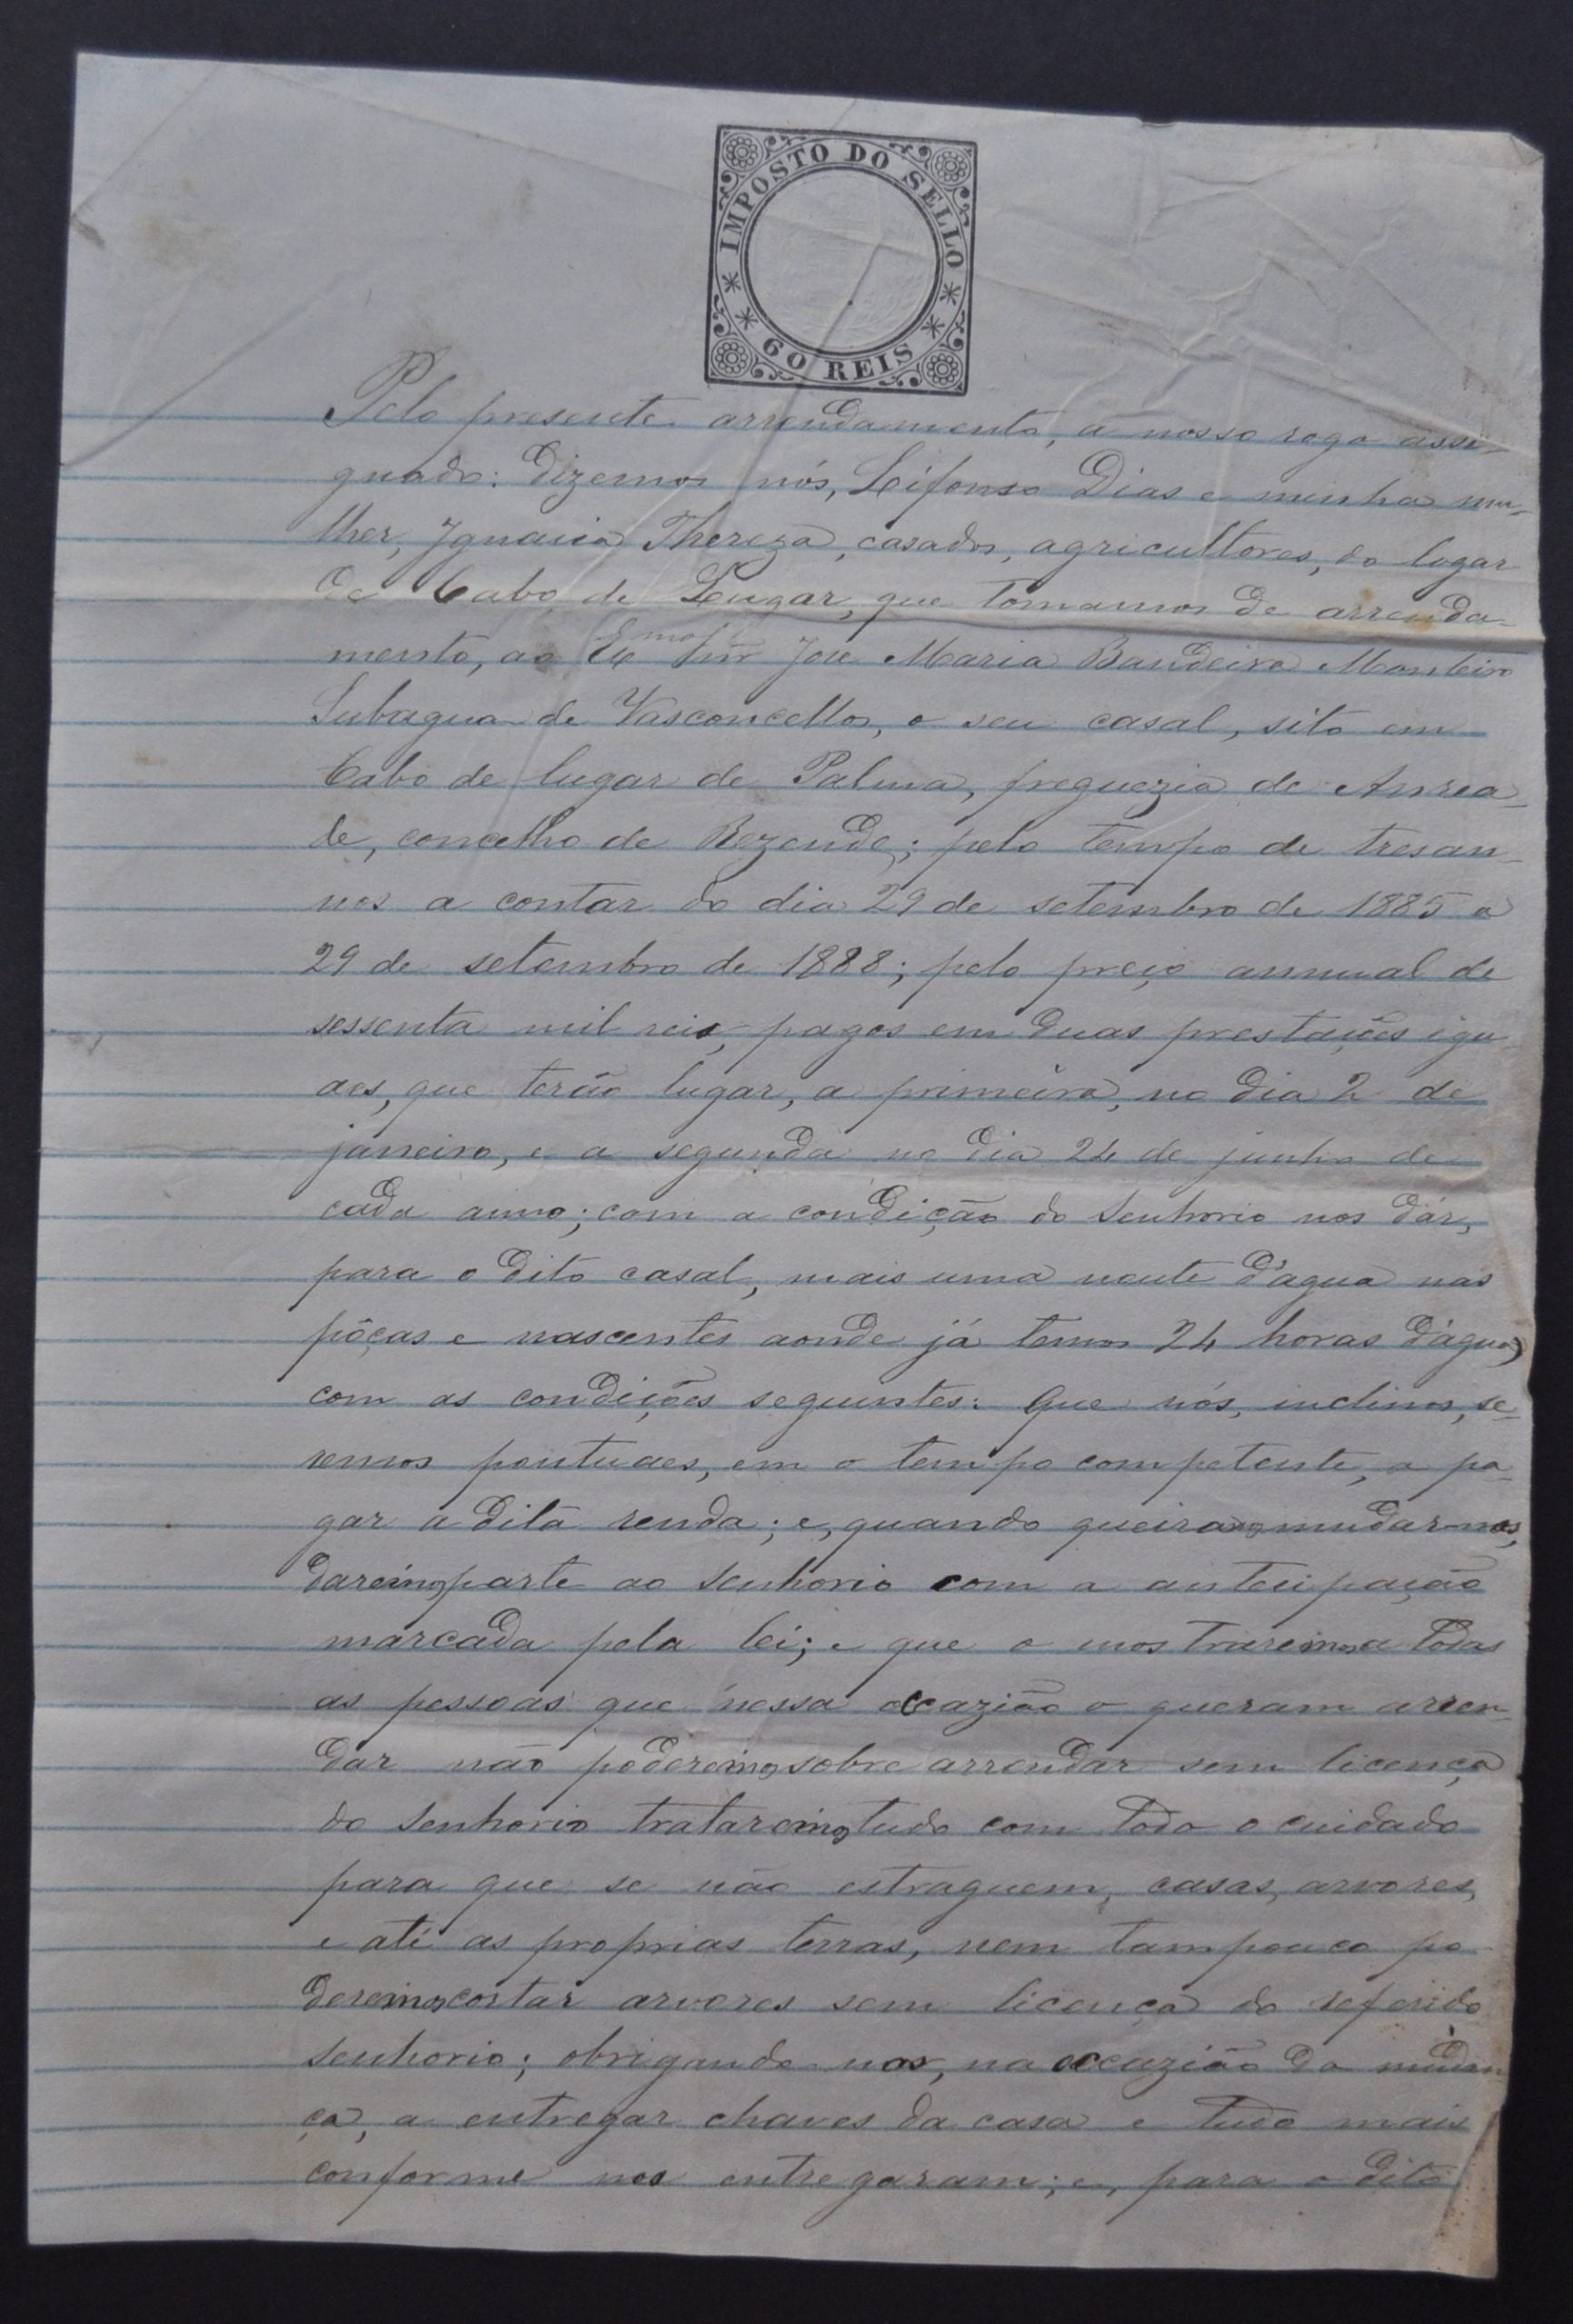 IMPOSTO DO SELLO
60 REIS
Pelo presente arrendamento, a nosso rogo assi-
gnado: Dizemos nós, Lifonso Dias e minha mu-
lher, Ignacia Thereza, casados, agricultores, do logar
de Cabo de Lugar, que tomamos de arrenda-
mento, ao Exmo Snr José Maria Bandeira Monteiro
Subagua de Vasconcellos, o seu casal, sito em
Cabo de lugar de Palma, freguezia de Anrea-
de, concelho de Rezende; pelo tempo de tres an-
nos a contar do dia 29 de setembro de 1885 a
29 de setembro de 1888; pelo preço annual de
sessenta mil reis, pagos em duas prestações igu
aes, que terão lugar, a primeira, no dia 2 de
janeiro, e a segunda no dia 24 de junho de
cada anno; com a condição do Senhorio nos dár,
para o dito casal, mais uma noute d'agua nas
pôças e nascentes aonde já temos 24 horas d'agua,
com as condições seguintes: Que nós, inclinos, se-
remos pontuaes, em o tempo competente, a pa-
gar a dita renda; e, quando queiramos mudar-nos,
daremos parte ao senhorio com a antecipação
marcada pela lei; e que o mostraremos a todas
as pessoas que nessa occazião o queram arren-
dar não poderemos sobre arrendar sem licença
do Senhorio trataremos tudo com todo o cuidado
para que se não estraguem, casas, arvores,
e até as proprias terras, nem tampouco po
deremos cortar arvores sem licença do referido
senhorio; obrigando-nos, na occazião da mudan
ça, a entregar chaves da casa e tudo mais
conforme nos entregaram; e, para o dito